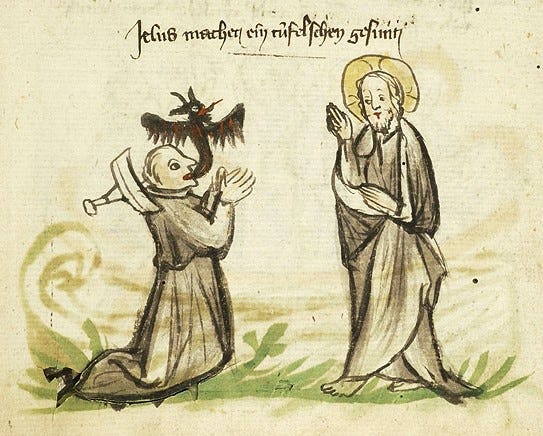 Jesus machet ein tüfelschen gesunt